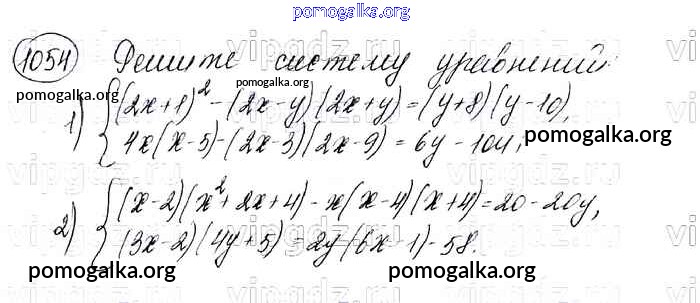 pomogalka.org
1054 Решите систему уравнений:
pomogalka.org pomogalka.org
1) { (2x+1)² - (2x-y)(2x+y) = (y+8)(y-10),
4x(x-5)-(2x-3)(2x-9) = 6y - 104; pomogalka.org
2) { (x-2)(x²+2x+4) - x(x-4)(x+4)=20-20y,
(3x-2)(4y+5) = 2y(6x-1)-58.
pomogalka.org pomogalka.org